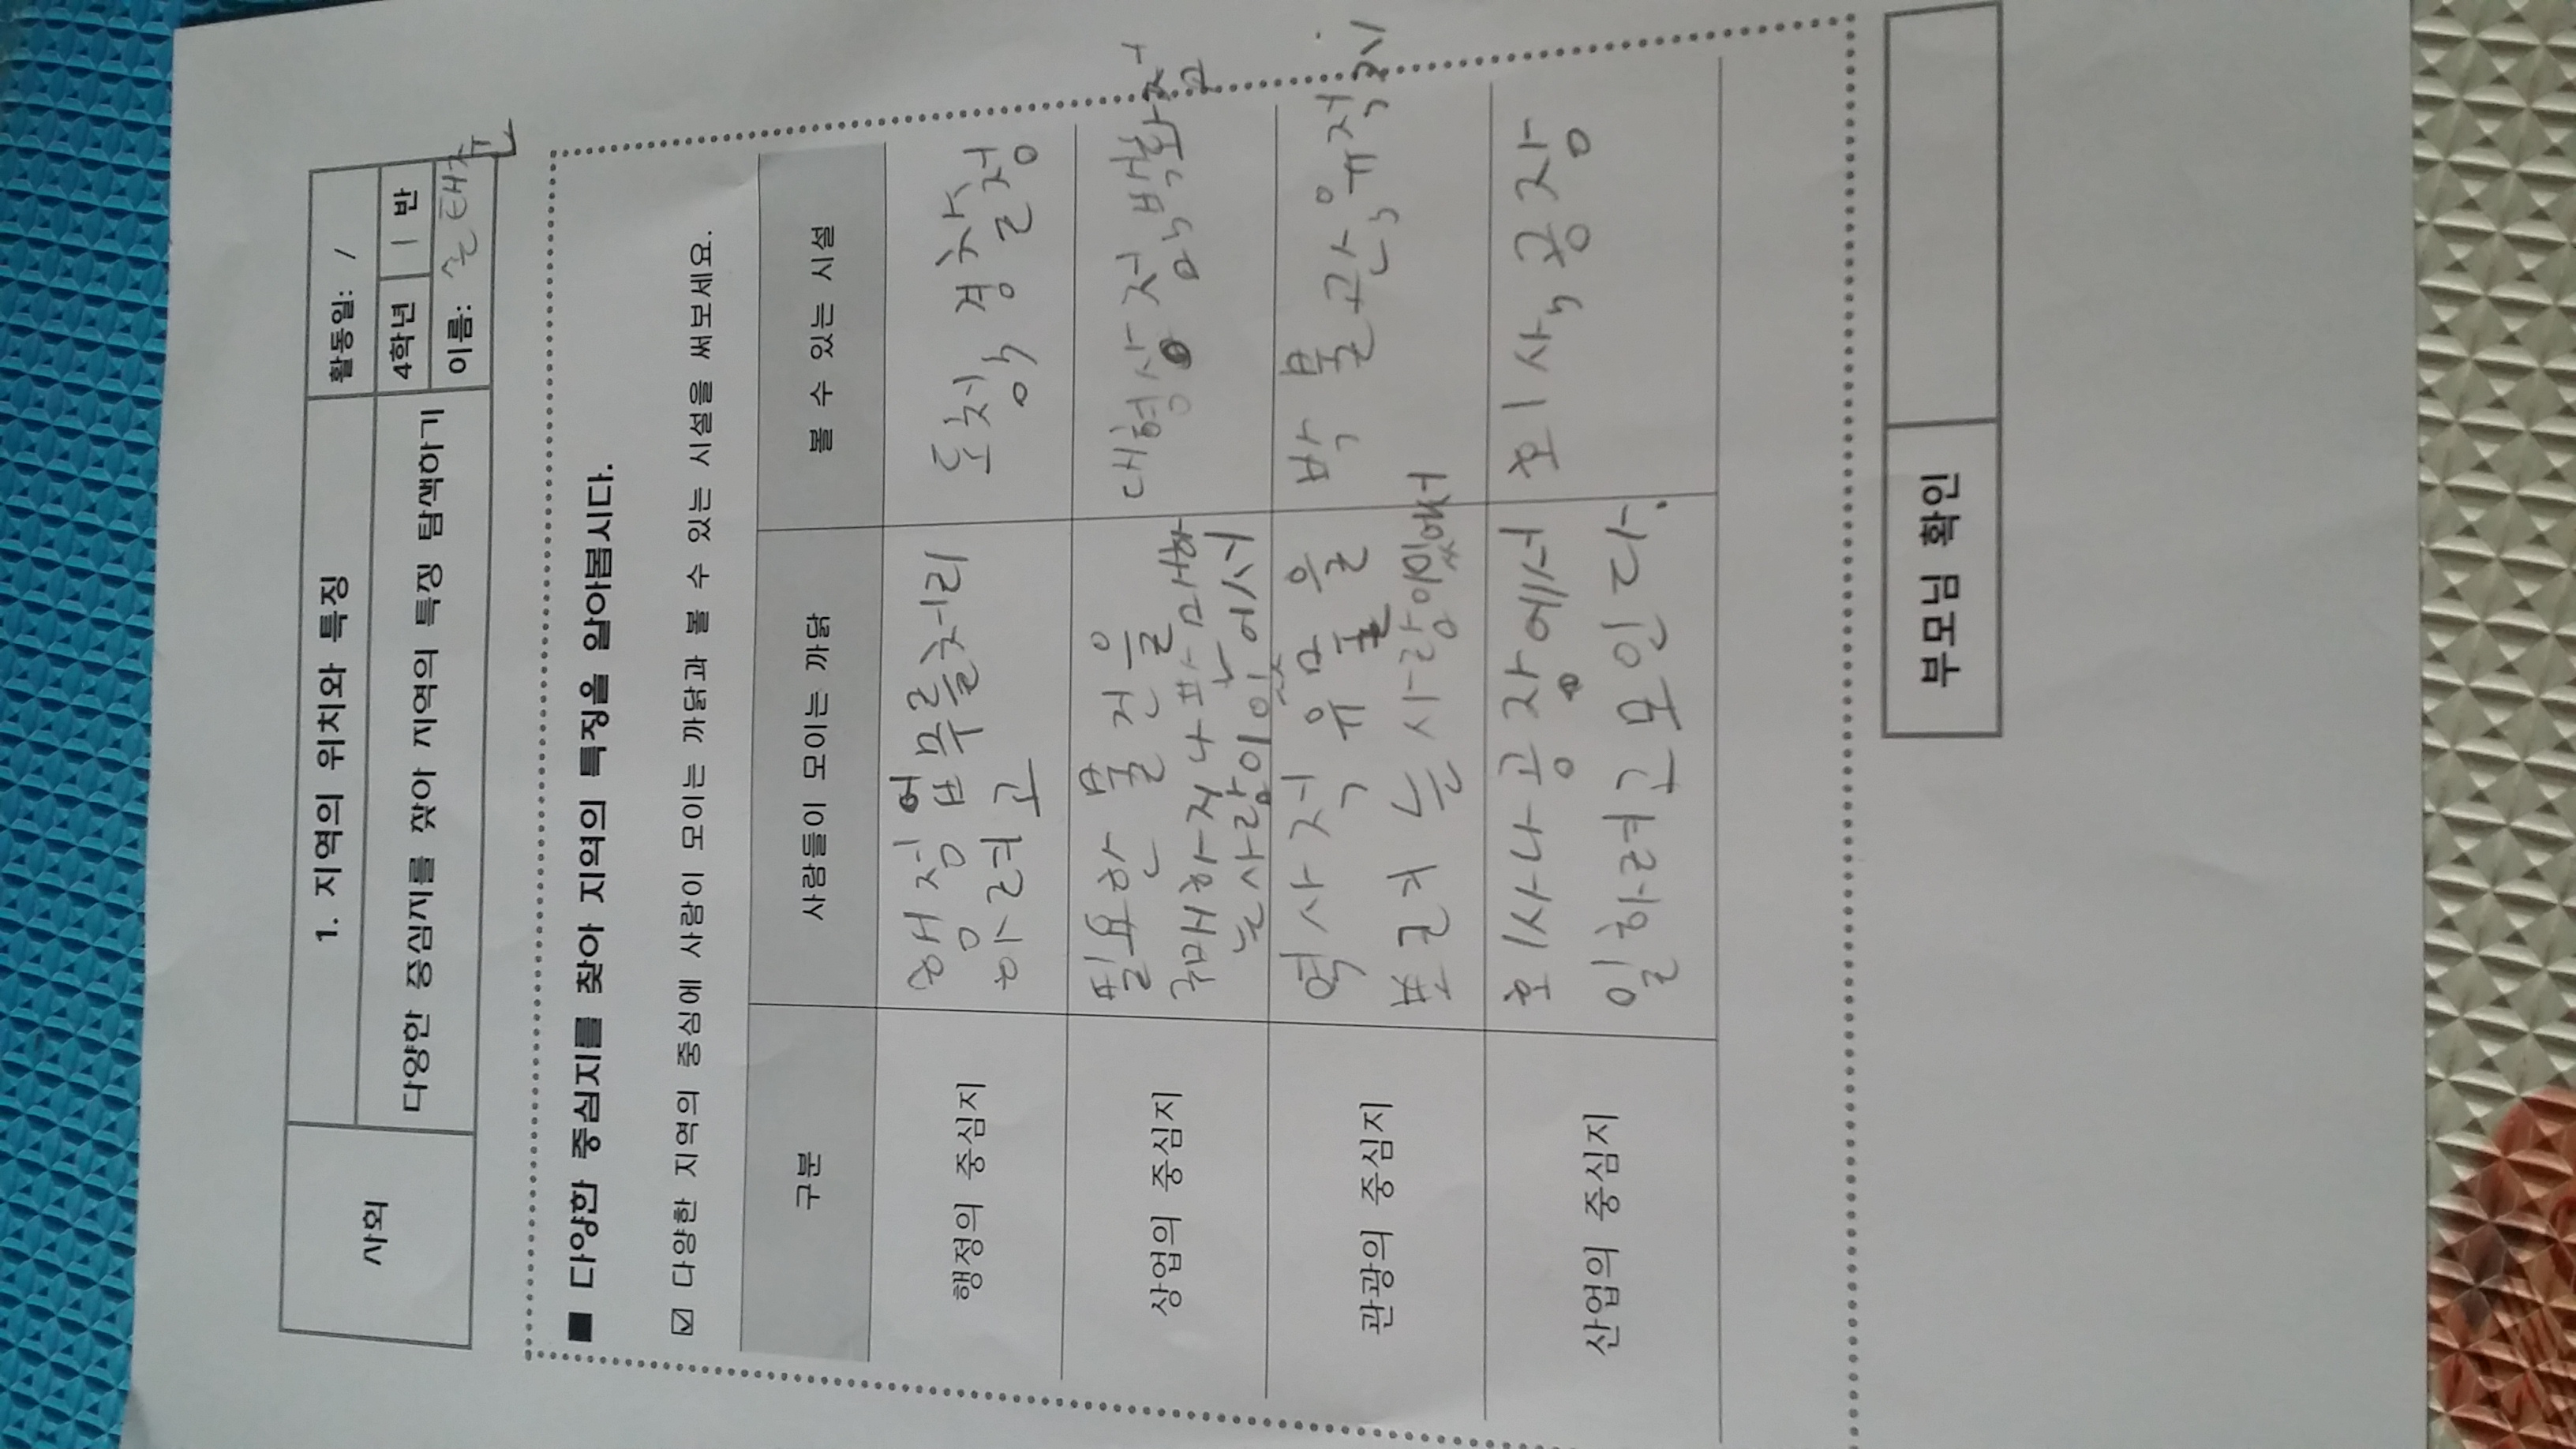 사회
1. 지역의 위치와 특징
활동일: /
다양한 중심지를 찾아 지역의 특징 탐색하기
4학년 1 반
이름: 손태
■ 다양한 중심지를 찾아 지역의 특징을 알아봅시다.
☑ 다양한 지역의 중심에 사람이 모이는 까닭과 볼 수 있는 시설을 써보세요.
구분 사람들이 모이는 까닭 볼 수 있는 시설
행정의 중심지
행정 업무를처리
하려고
도청, 경찰청
상업의 중심지
필요한 물건을
구매하거나 판매하
는사람이있어서
대형상점, 백화점
관광의 중심지
역사적 유물을
보려는 사람이있어서
박물관, 유적지
산업의 중심지
회사나공장에서
일하려고모인다.
회사, 공장
부모님 확인